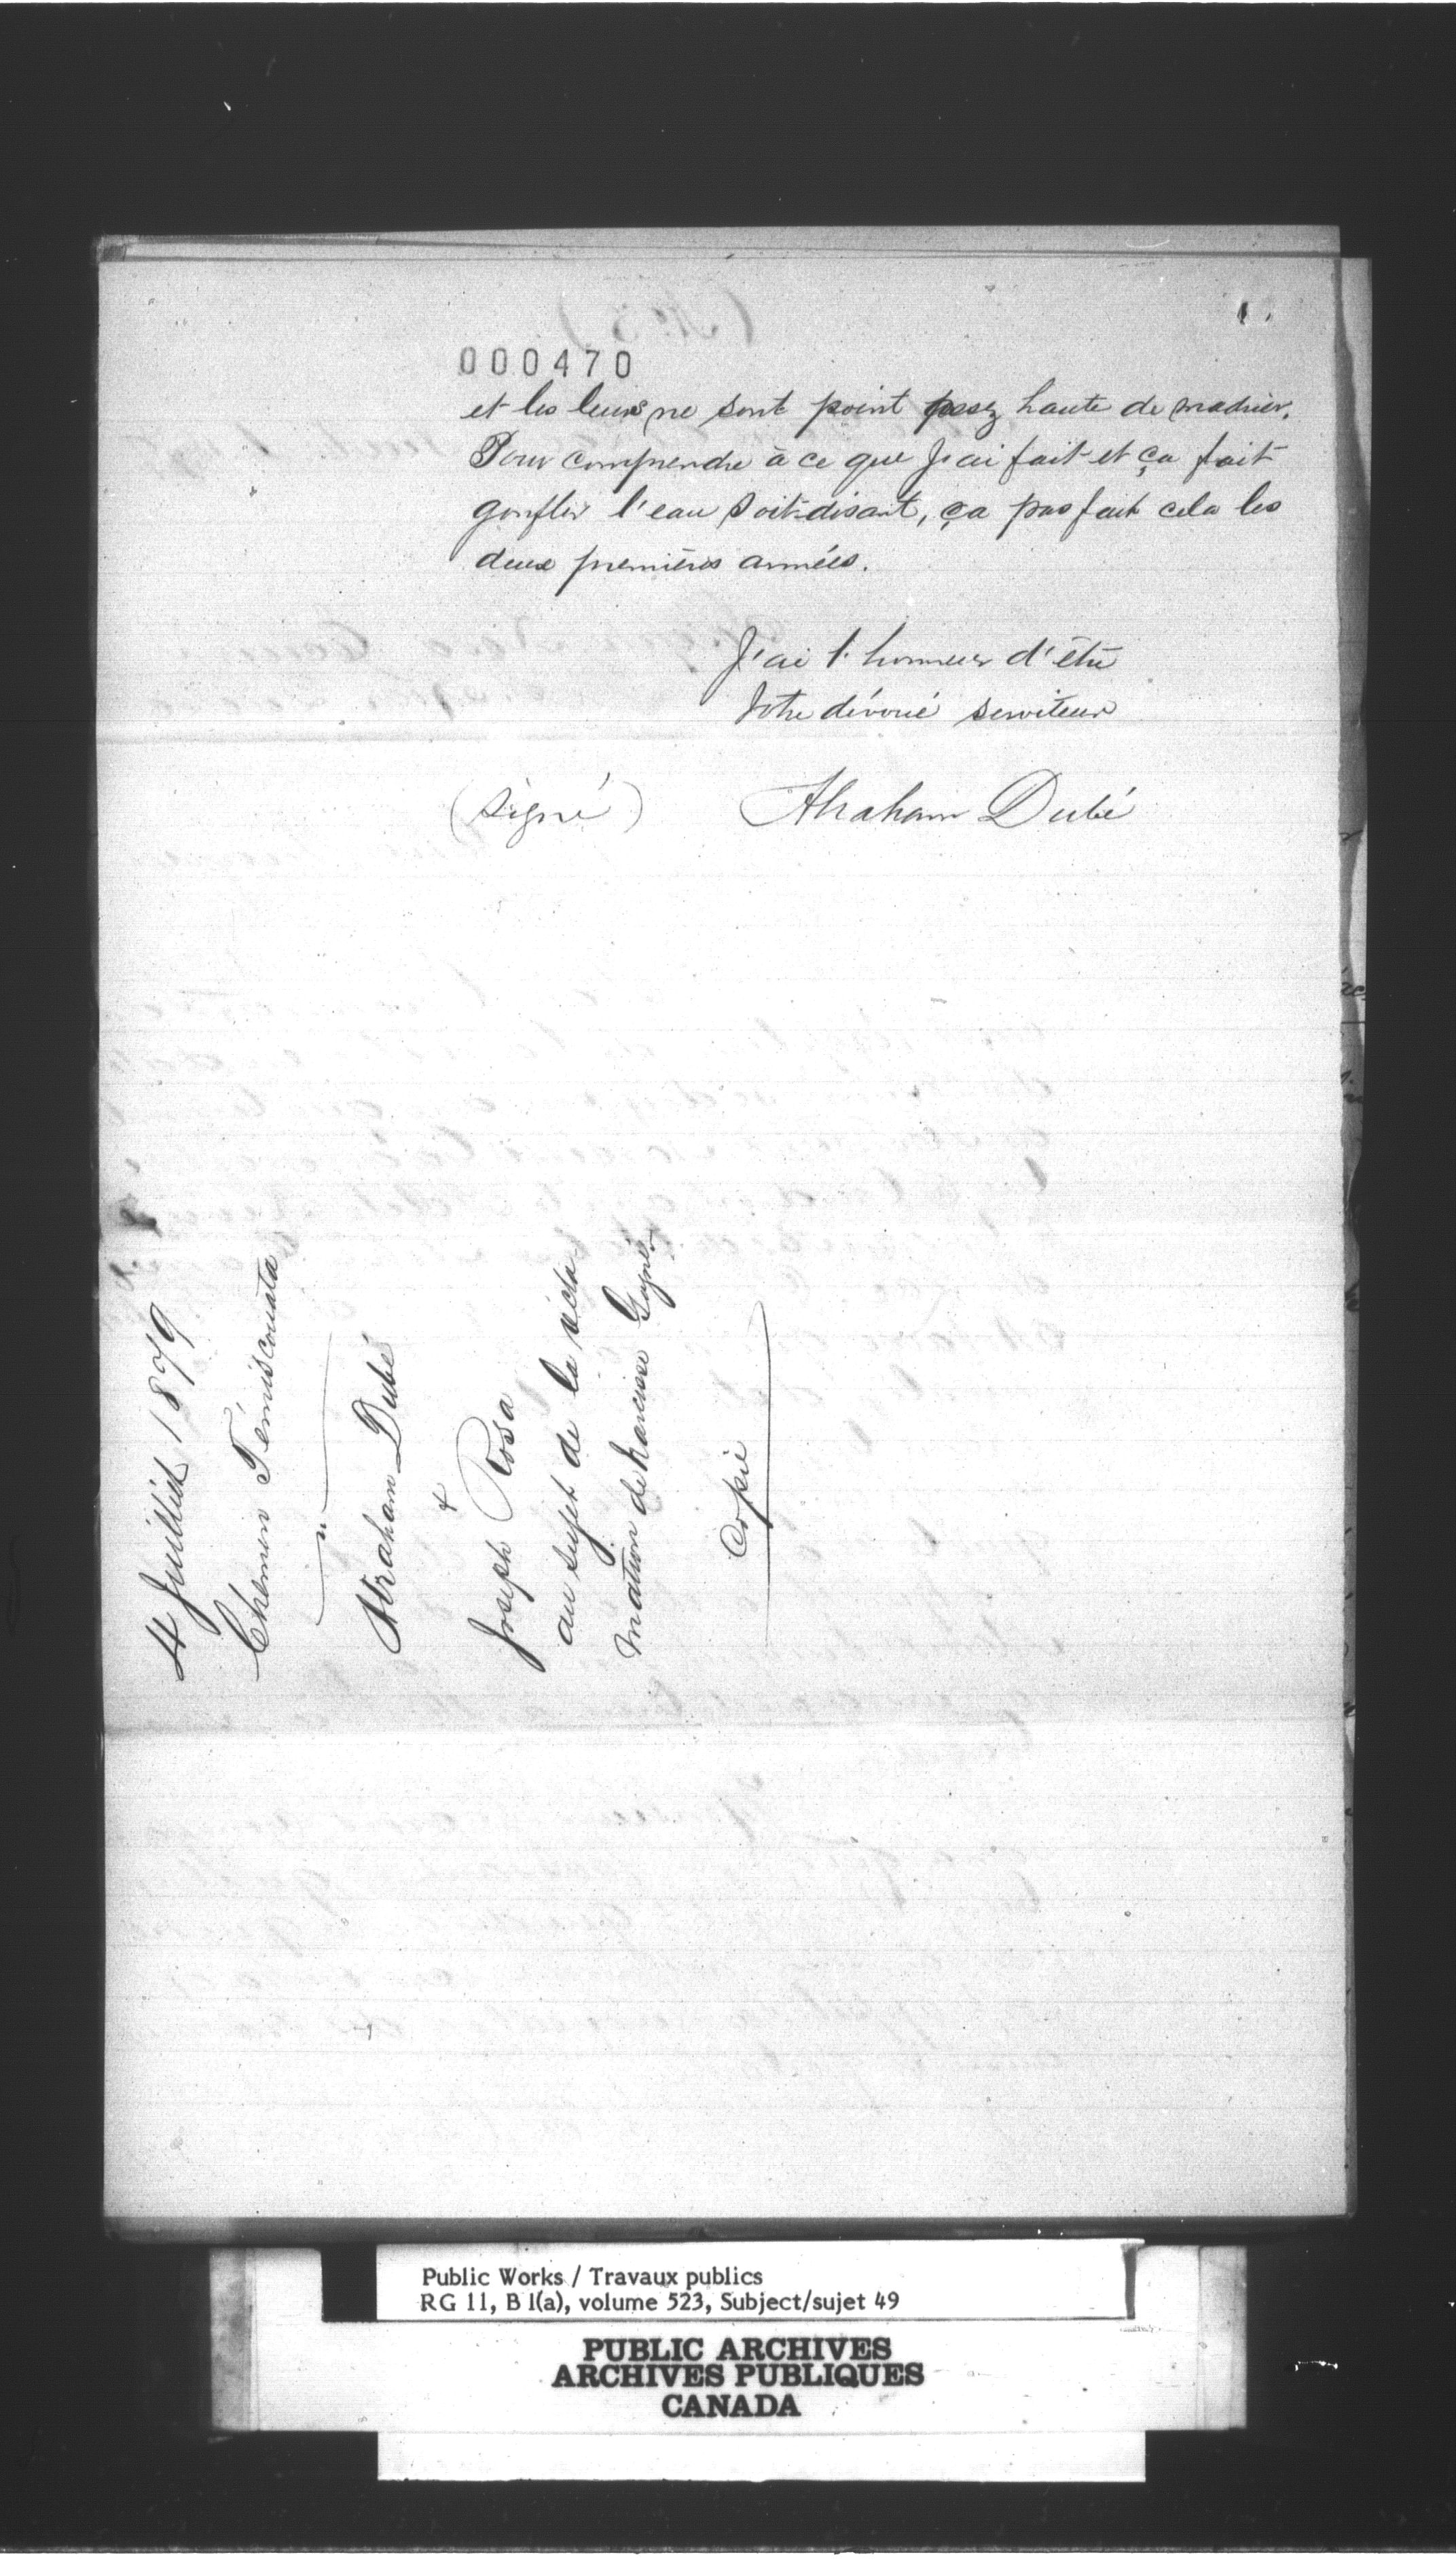 000470
et les leurs ne sont point posez haute de madrier.
Pour comprendre à ce que J'ai fait et ça fait
gonfler l'eau soit-disant, ça pas fait cela les
deux premières années.
J'ai l'honneur d'être
Votre dévoué serviteur
(Signé) Abraham Dubé
4 Juillet 1879
Chemin Témiscouata
Abraham Dubé
&
Joseph Rosa
au sujet de la récla
mation de Narcisse Gagné
Copie
Public Works / Travaux publics
RG 11, B 1(a), volume 523, Subject/sujet 49
PUBLIC ARCHIVES
ARCHIVES PUBLIQUES
CANADA